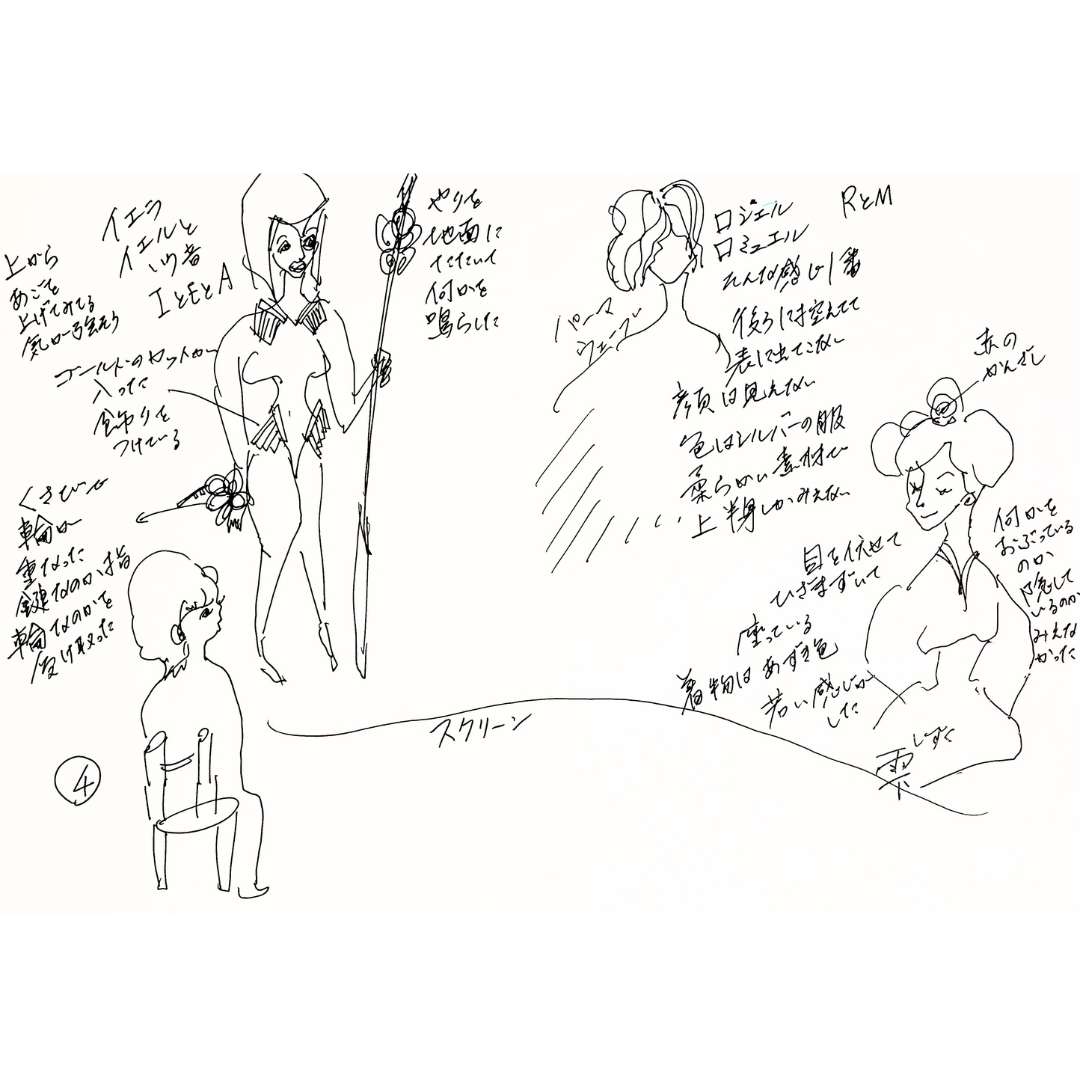 イエラ
イエルと
いう音
IとEとA
上から
あごを
上げてみてる
気が強そう
ゴールドのカットが
入った
飾りを
つけている
やりを
地面に
たたいて
何かを
鳴らした
くさびで
輪が
重なった
鍵なのか指
輪なのかを
受け取った
④
スクリーン
パーマ
ウェーブ
ロジェル
ロミュエル
RとM
そんな感じ
後ろに控えてて
表に出てこない
顔は見えない
色はシルバーの服
柔らかい素材で
上半身しかみえない
赤の
かんざし
目を伏せて
ひざまずいて
座っている
着物はあずき色
若い感じが
した
何かを
おぶっている
のか
隠して
いるのか
みえな
かった
しずく
雫